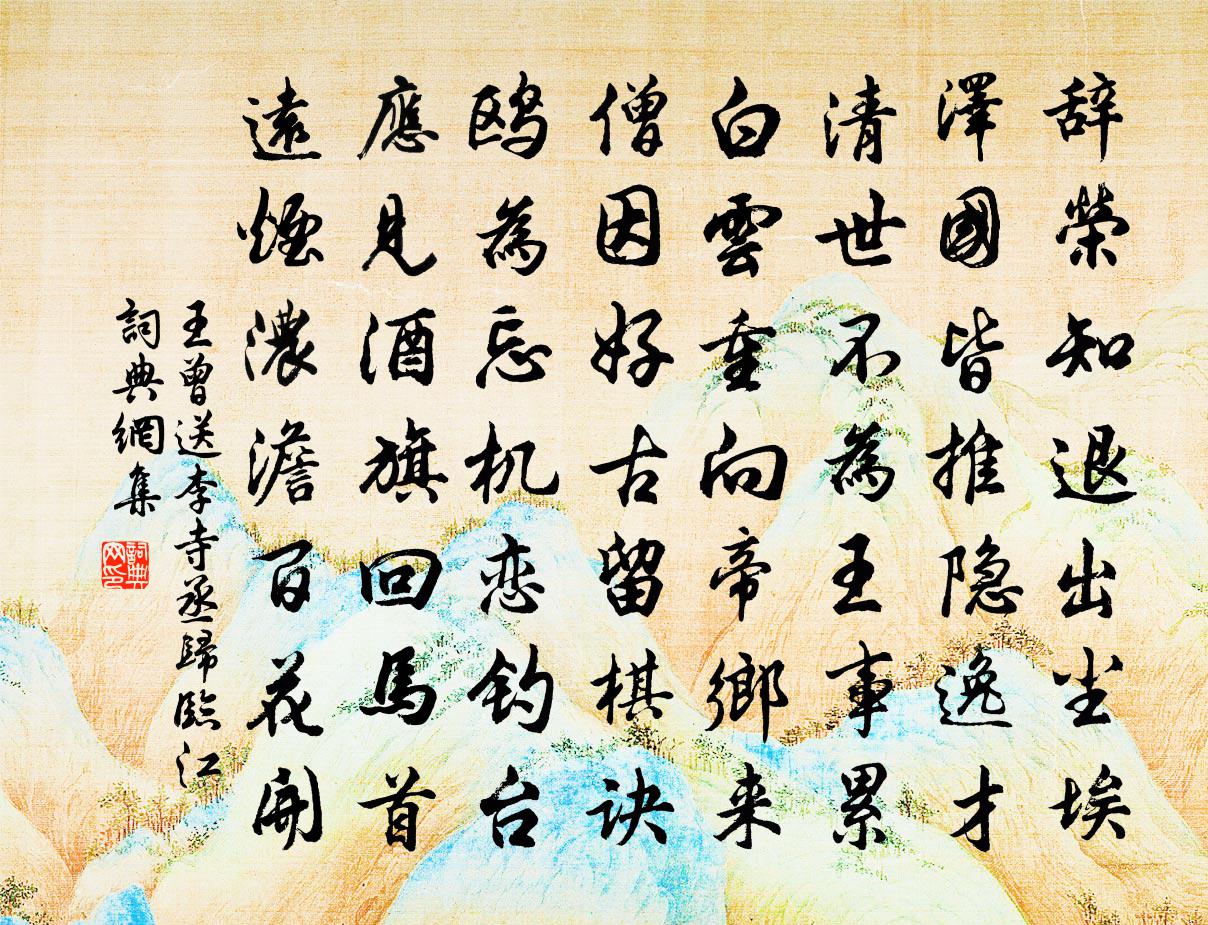 辞榮知退出尘埃
澤國皆推隐逸才
清世不為王事累
白雲重向帝鄉来
僧因好古留棋诀
鸥為忘机恋钓台
應見酒旗回馬首
遠煙濃澹百花開
王曾送李寺丞歸臨江
詞典網集
詞典網印